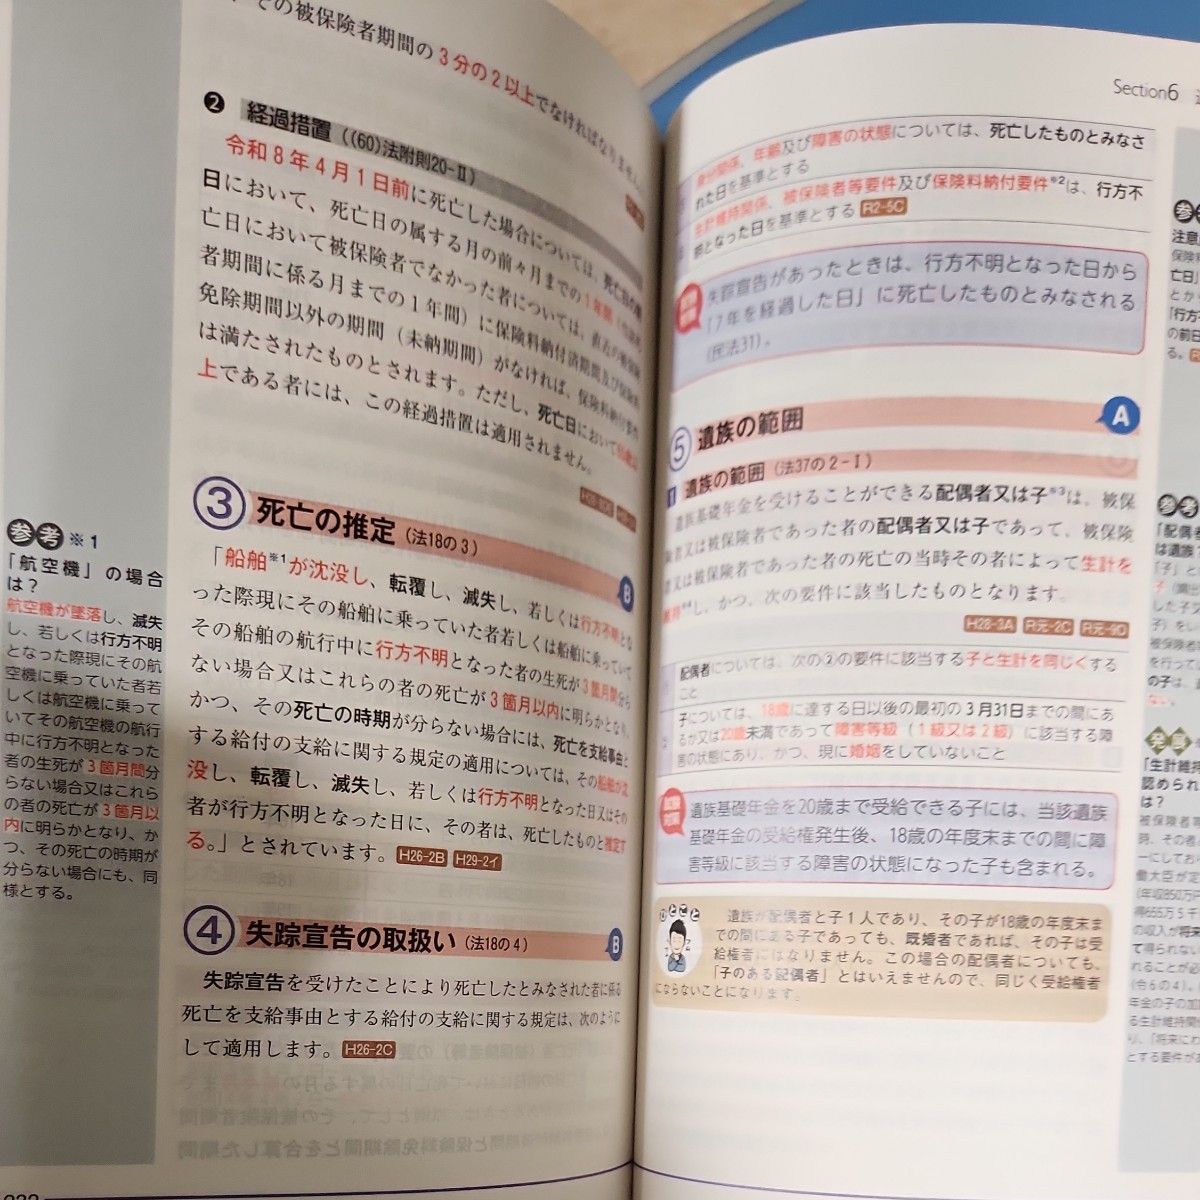 その被保険者期間の3分の2以上でなければなりません。
❷ 経過措置（(60)法附則20-Ⅱ）
令和8年4月1日前に死亡した場合については、死亡日の
日において、死亡日の属する月の前々月までの1年間
亡日において被保険者でなかった者については、直近の被保険
者期間に係る月までの1年間）に保険料納付済期間及び保険料
免除期間以外の期間（未納期間）がなければ、保険料納付要件
は満たされたものとされます。ただし、死亡日において
上である者には、この経過措置は適用されません。
③ 死亡の推定（法18の3）
B
「船舶※1が沈没し、転覆し、滅失し、若しくは行方不明とな
った際現にその船舶に乗っていた者若しくは船舶に乗っていて
その船舶の航行中に行方不明となった者の生死が3箇月間分ら
ない場合又はこれらの者の死亡が3箇月以内に明らかとなり、
かつ、その死亡の時期が分らない場合には、死亡を支給事由と
する給付の支給に関する規定の適用については、その船舶が沈
没し、転覆し、滅失し、若しくは行方不明となった日又はその
者が行方不明となった日に、その者は、死亡したものと推定す
る。」とされています。H26-2B H29-2イ
④ 失踪宣告の取扱い（法18の4）
B
失踪宣告を受けたことにより死亡したとみなされた者に係る
死亡を支給事由とする給付の支給に関する規定は、次のように
して適用します。H26-2C
参考 ※1
「航空機」の場合
は？
航空機が墜落し、滅失
し、若しくは行方不明
となった際現にその航
空機に乗っていた者若
しくは航空機に乗って
いてその航空機の航行
中に行方不明となった
者の生死が3箇月間分
らない場合又はこれら
の者の死亡が3箇月以
内に明らかとなり、か
つ、その死亡の時期が
分らない場合にも、同
様とする。
Section6
身分関係、年齢及び障害の状態については、死亡したものとみなさ
れた日を基準とする
生計維持関係、被保険者等要件及び保険料納付要件※2は、行方不
明となった日を基準とする R2-5C
失踪宣告があったときは、行方不明となった日から
「7年を経過した日」に死亡したものとみなされる
（民法31）。
⑤ 遺族の範囲
A
1 遺族の範囲（法37の2-Ⅰ）
遺族基礎年金を受けることができる配偶者又は子※3は、被保
険者又は被保険者であった者の配偶者又は子であって、被保険
者又は被保険者であった者の死亡の当時その者によって生計を
維持※4し、かつ、次の要件に該当したものとなります。
H28-3A R元-2C R元-9D
配偶者については、次の②の要件に該当する子と生計を同じくする
こと
子については、18歳に達する日以後の最初の3月31日までの間にあ
るか又は20歳未満であって障害等級（1級又は2級）に該当する障
害の状態にあり、かつ、現に婚姻をしていないこと
試験対策
遺族基礎年金を20歳まで受給できる子には、当該遺族
基礎年金の受給権発生後、18歳の年度末までの間に障
害等級に該当する障害の状態になった子も含まれる。
ひとこと
遺族が配偶者と子1人であり、その子が18歳の年度末ま
での間にある子であっても、既婚者であれば、その子は受
給権者にはなりません。この場合の配偶者についても、
「子のある配偶者」とはいえませんので、同じく受給権者
にならないことになります。